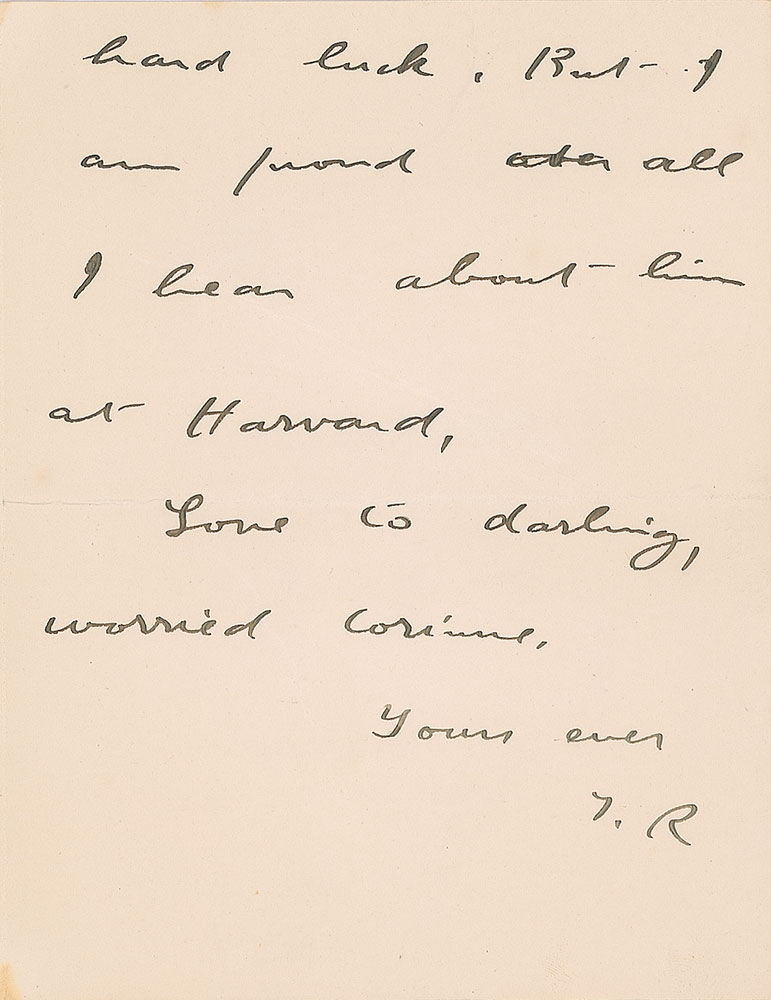 hard luck. But I
am proud over all
I hear about him
at Harvard,
Love to darling,
worried Corinne.
Yours ever
T. R